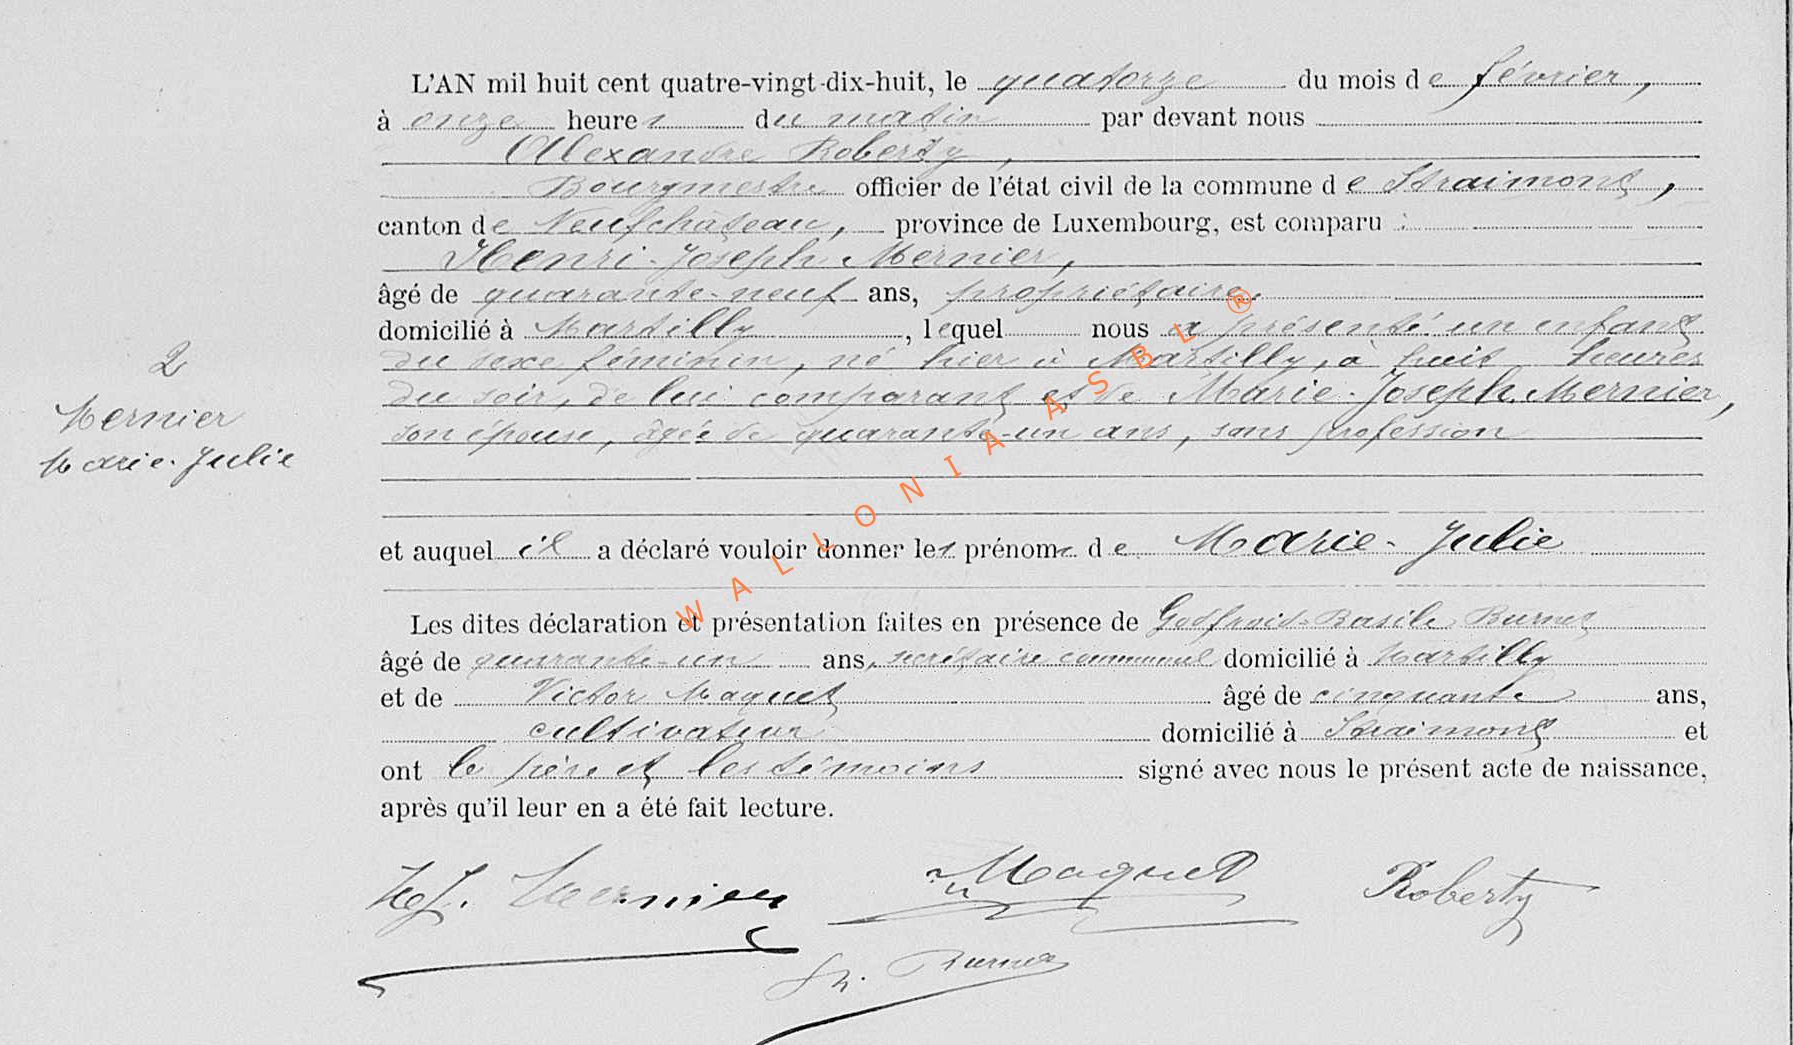 L'AN mil huit cent quatre-vingt-dix-huit, le quatorze du mois de février,
à onze heures du matin par devant nous
Alexandre Roberty,
Bourgmestre officier de l'état civil de la commune de Straimont,
canton de Neufchâteau, province de Luxembourg, est comparu :
Henri-Joseph Mernier,
âgé de quarante-neuf ans, propriétaire,
domicilié à Martilly, lequel nous a présenté un enfant
du sexe féminin, né hier à Martilly, à huit heures
du soir, de lui comparant et de Marie-Joseph Mernier,
son épouse, âgée de quarante-un ans, sans profession
2
Mernier
Marie-Julie
et auquel il a déclaré vouloir donner les prénoms de Marie-Julie
Les dites déclaration et présentation faites en présence de Godfroid-Basile Burnet
âgé de quarante-un ans, secrétaire communal domicilié à Martilly
et de Victor Maquet âgé de cinquante ans,
cultivateur domicilié à Straimont et
ont le père et les témoins signé avec nous le présent acte de naissance,
après qu'il leur en a été fait lecture.
HJ. Mernier Maquet Roberty
Burnet
WALLONIA ASBL ®